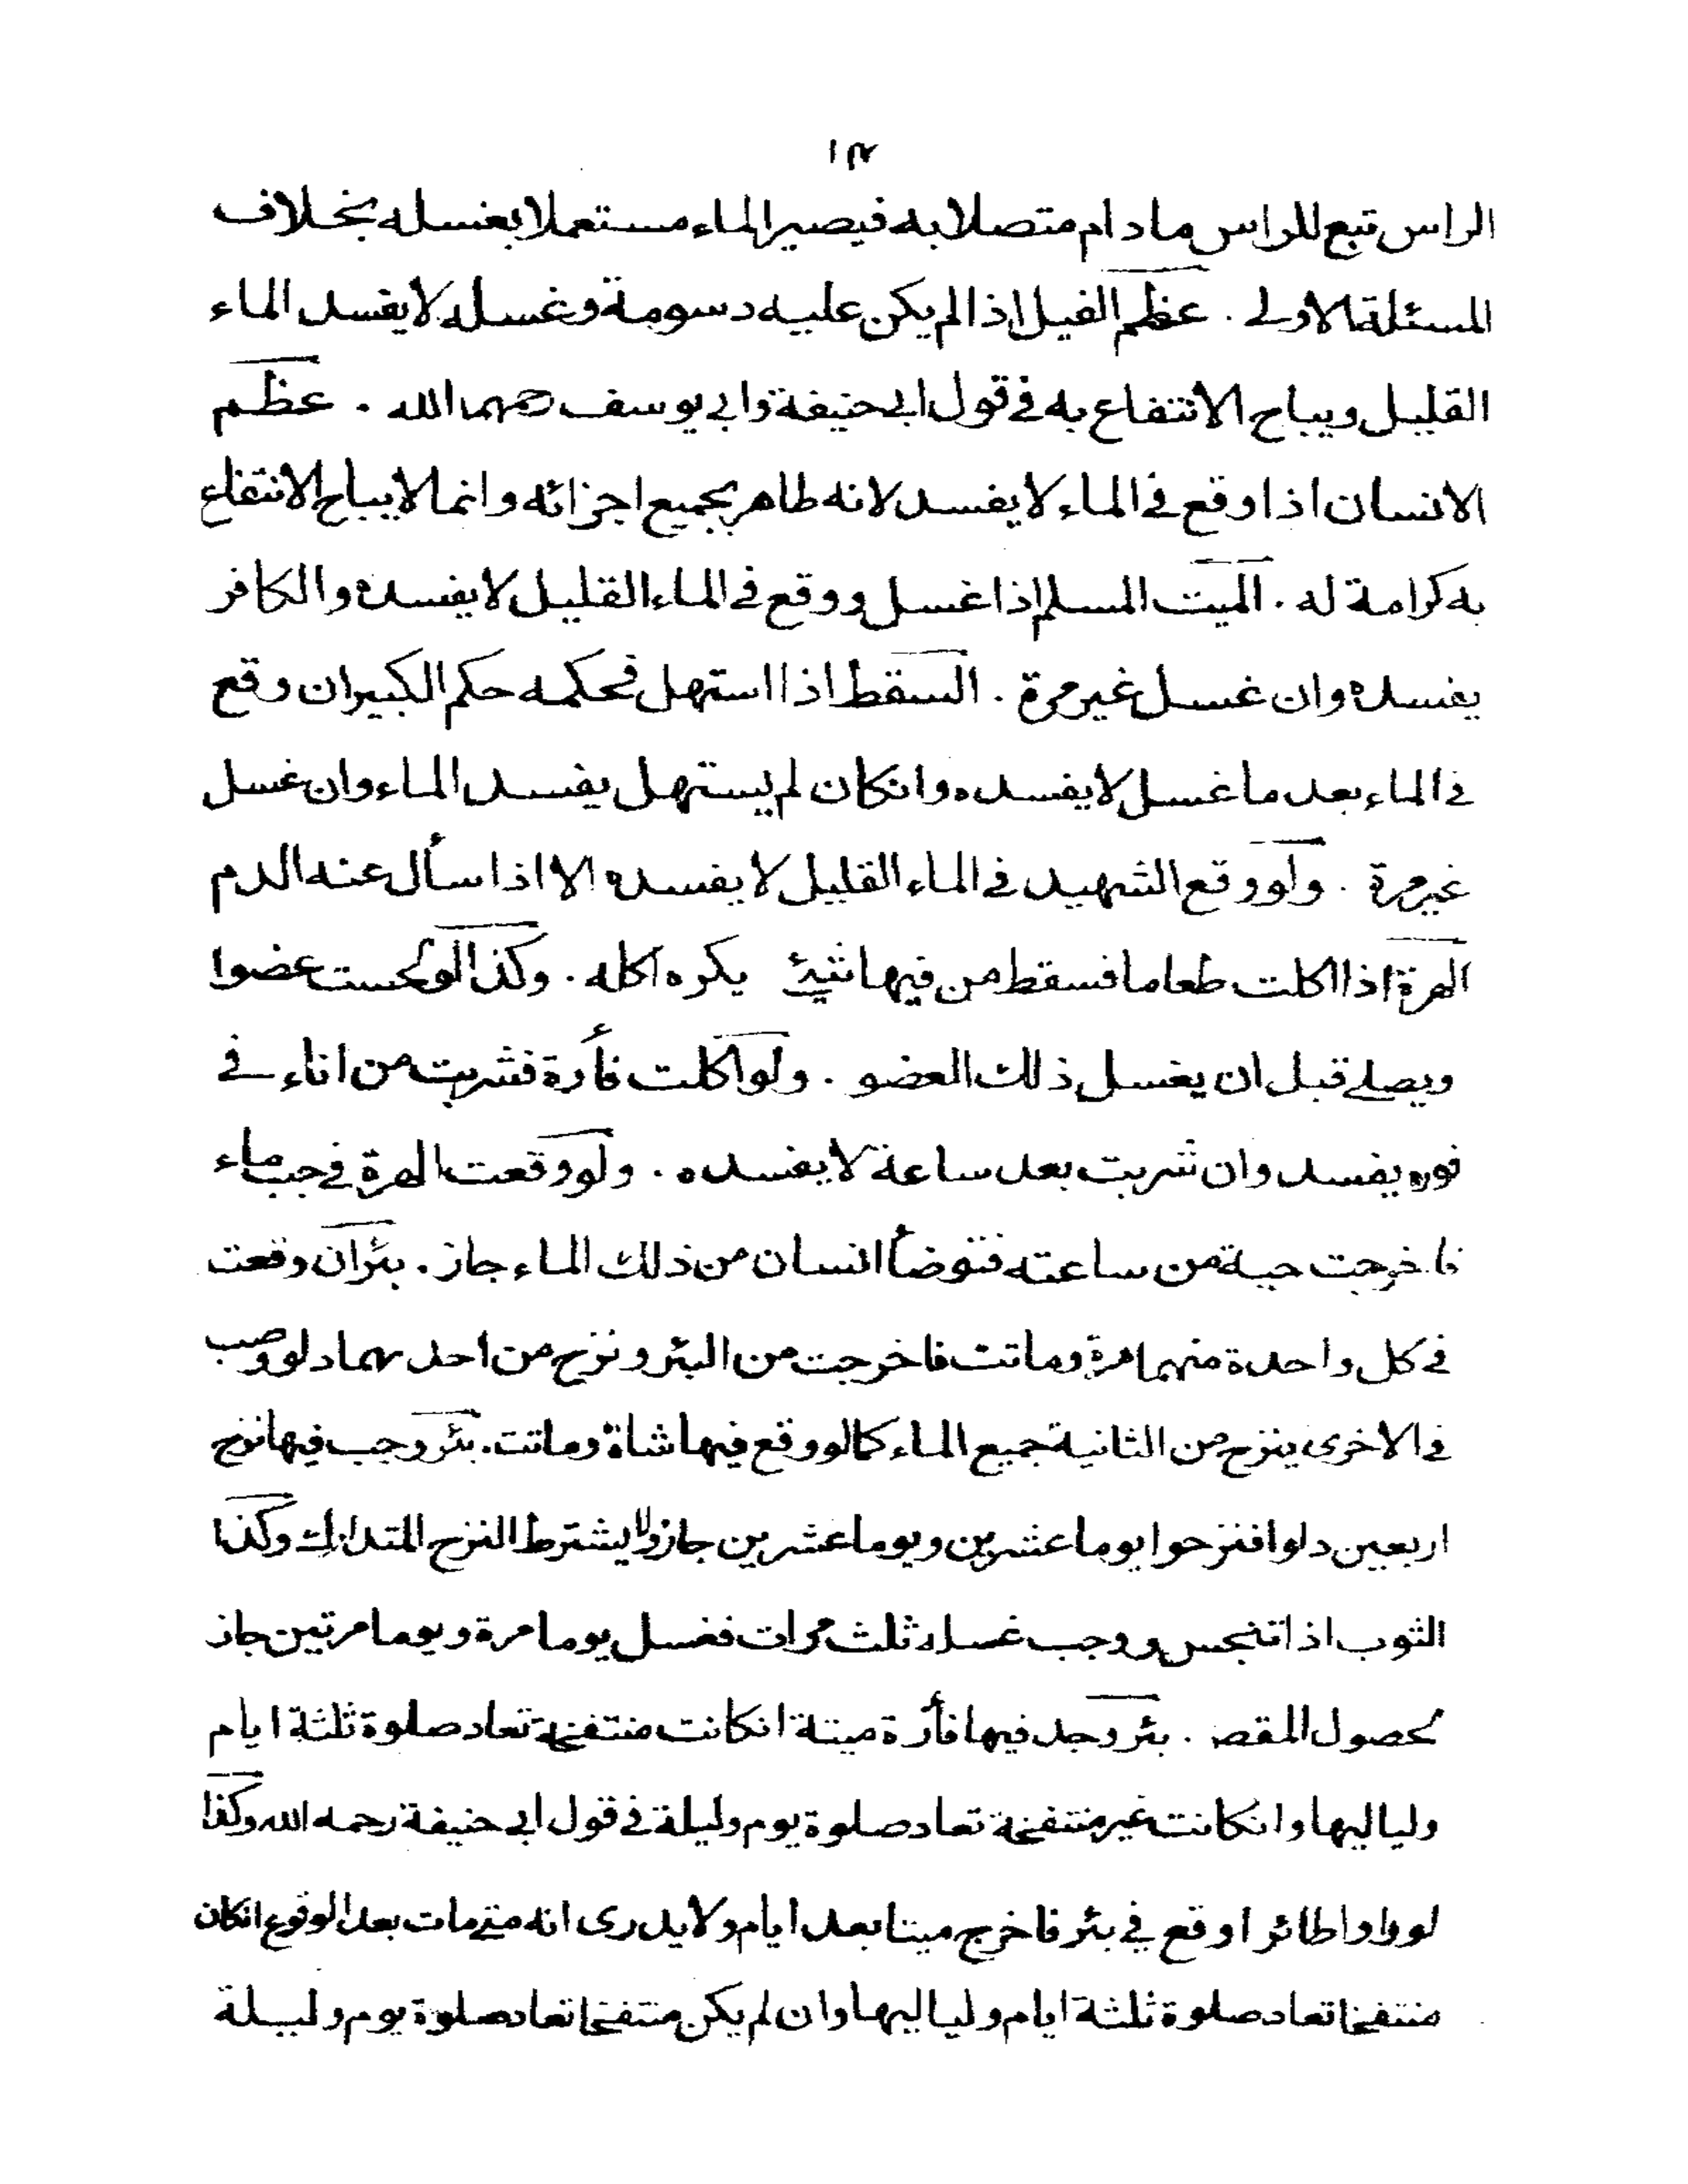 ١٣
الراس تبع للراس مادام متصلا به فيصير الماء مستعملا بغسله بخلاف
المسئلة الاولى . عظم الفيل اذا لم يكن عليه دسومة وغسل لا يفسد الماء
القليل ويباح الانتفاع به في قول ابي حنيفة وابي يوسف رحمهما الله . عظم
الانسان اذا وقع في الماء لا يفسد لانه طاهر بجميع اجزائه وانما لا يباح الانتفاع
به كرامة له . الميت المسلم اذا غسل ووقع في الماء القليل لا يفسده والكافر
يفسده وان غسل غير مرة . السقط اذا استهل فحكمه حكم الكبير ان وقع
في الماء بعد ما غسل لا يفسده وانكان لم يستهل يفسد الماء وان غسل
غير مرة . ولو وقع الشهيد في الماء القليل لا يفسده الا اذا سأل عنه الدم
الهرة اذا اكلت طعاما فسقط من فيها شيئ يكره اكله . وكذا لو لحست عضوا
ويصلي قبل ان يغسل ذلك العضو . ولو اكلت فأرة فشربت من اناء في
فوره يفسد وان شربت بعد ساعة لا يفسده . ولو وقعت الهرة في جب ماء
فاخرجت حية من ساعته فتوضأ انسان من ذلك الماء جاز . بئران وقعت
في كل واحدة منهما هرة وماتت فاخرجت من البئر ونزح من احدهما دلو وصب
في الاخرى ينزح من الثانية جميع الماء كما لو وقع فيها شاة وماتت . بئر وجب فيها نزح
اربعين دلوا فنزحوا يوما عشرين ويوما عشرين جاز ولا يشترط النزح المتدارك وكذا
الثوب اذا تنجس ووجب غسله ثلث مرات فغسل يوما مرة ويوما مرتين جاز
لحصول المقص . بئر وجد فيها فأرة ميتة انكانت منتفخة تعاد صلوة ثلثة ايام
ولياليها وانكانت غير منتفخة تعاد صلوة يوم وليلة في قول ابي حنيفة رحمه الله وكذا
لو راوا طائرا وقع في بئر فاخرج ميتا بعد ايام ولا يدرى انه متى مات بعد الوقوع انكان
منتفخا تعاد صلوة ثلثة ايام ولياليها وان لم يكن منتفخا تعاد صلوة يوم وليلة